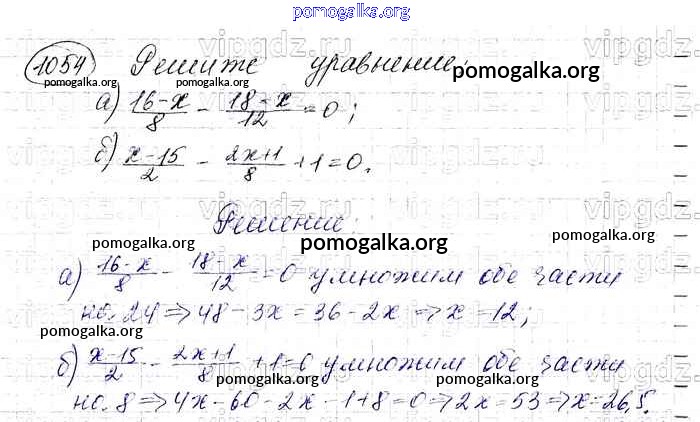 pomogalka.org
1054 Решите уравнение:
pomogalka.org
а) (16-x)/8 - (18-x)/12 = 0;
б) (x-15)/2 - (2x+1)/8 + 1 = 0.
Решение:
pomogalka.org pomogalka.org pomogalka.org
а) (16-x)/8 - (18-x)/12 = 0 умножим обе части
на 24 ⇒ 48 - 3x = 36 - 2x ⇒ x = 12;
pomogalka.org pomogalka.org pomogalka.org
б) (x-15)/2 - (2x+1)/8 + 1 = 0 умножим обе части
pomogalka.org pomogalka.org pomogalka.org
на 8 ⇒ 4x - 60 - 2x - 1 + 8 = 0 ⇒ 2x = 53 ⇒ x = 26,5.